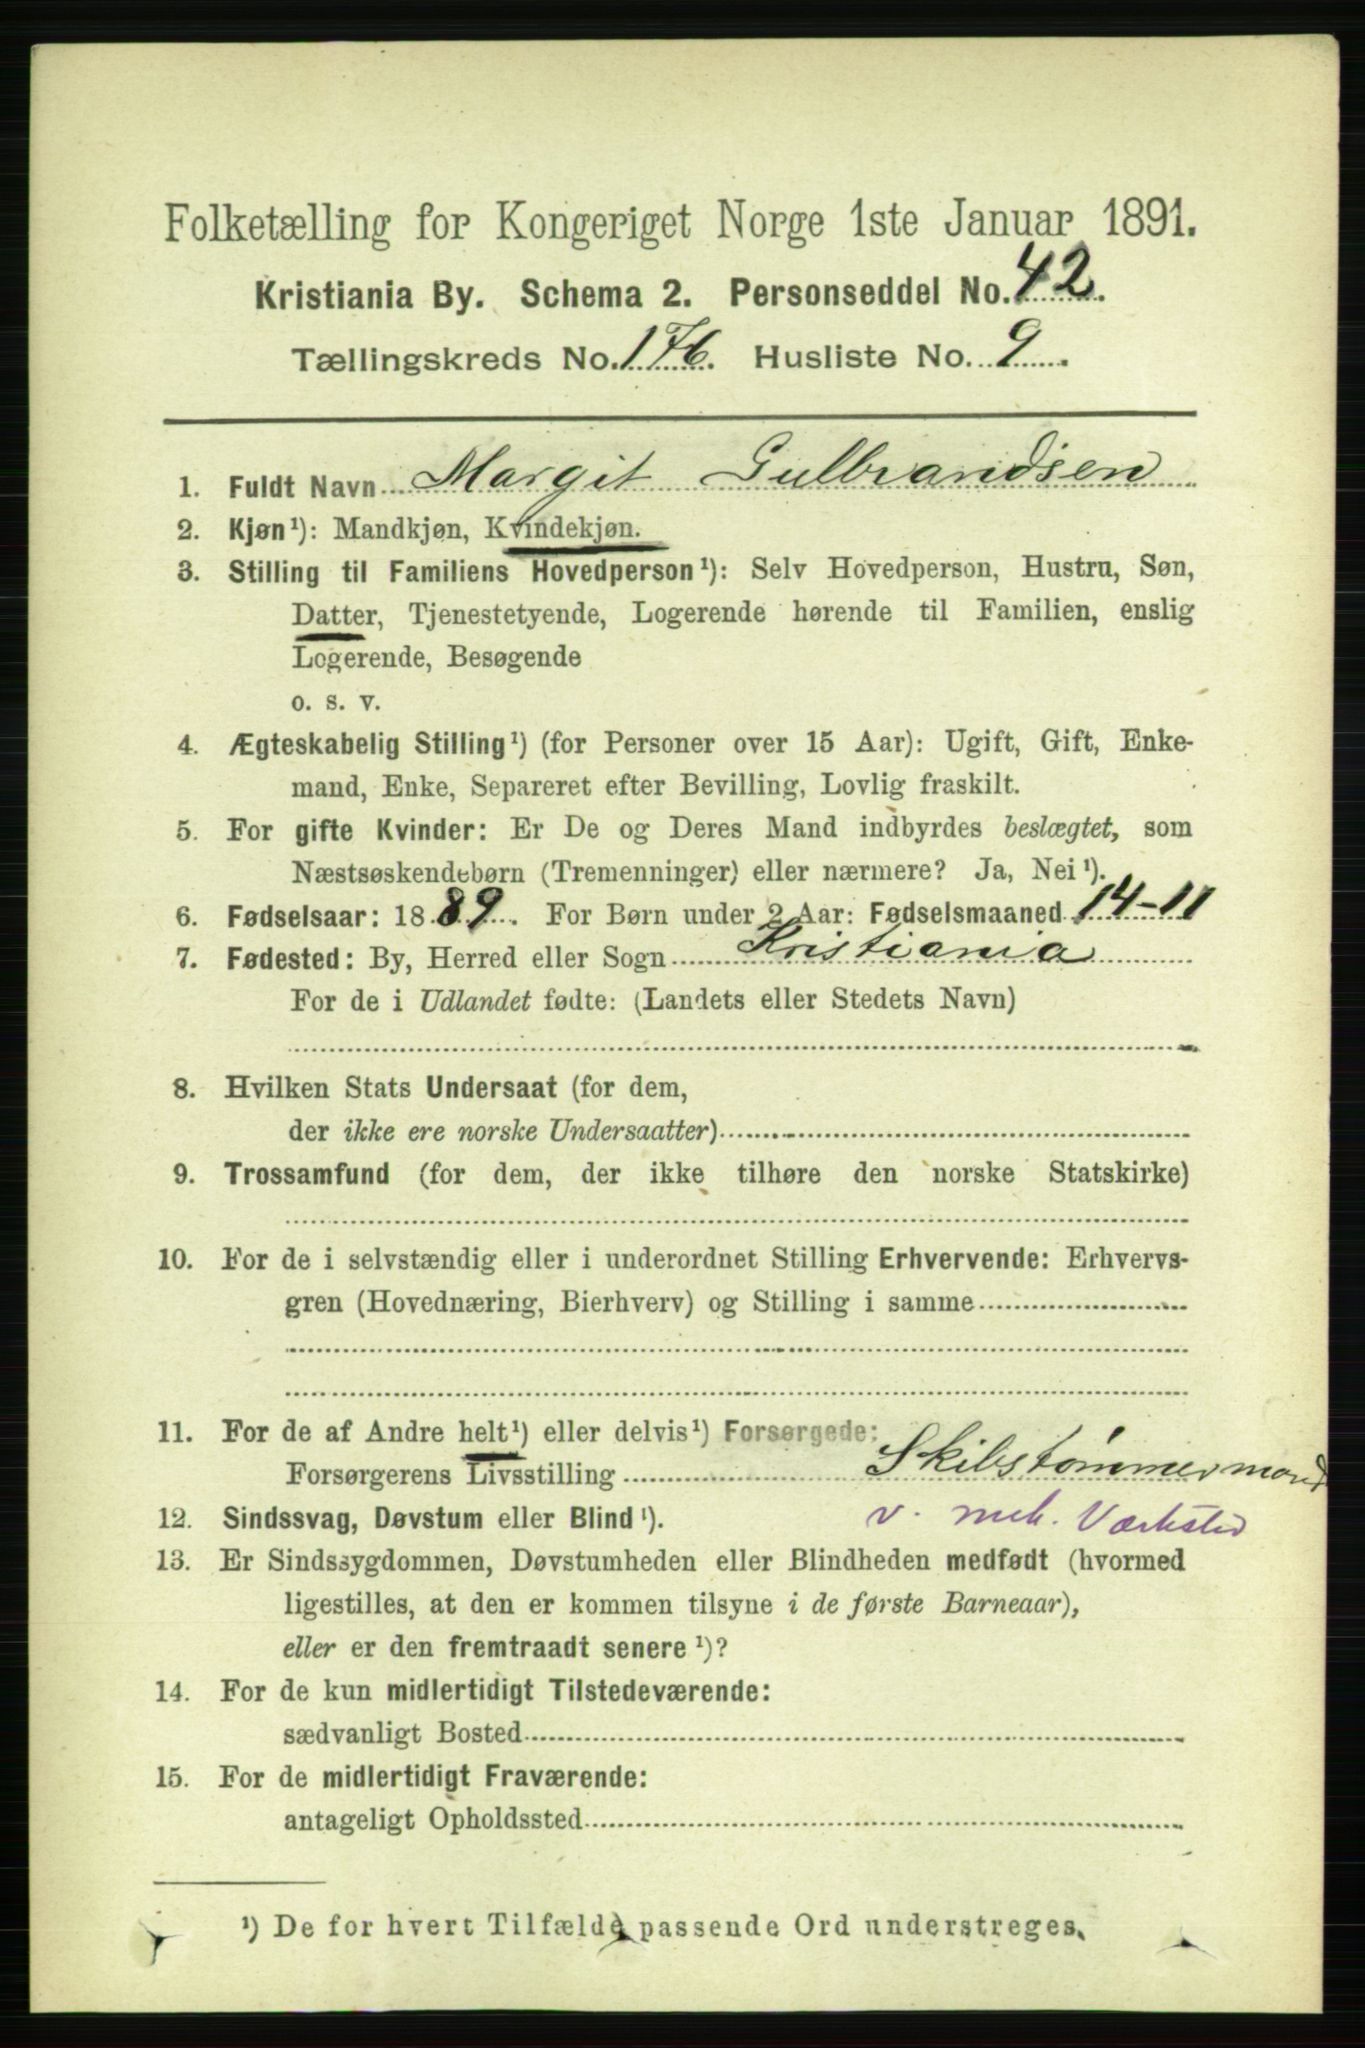 Folketælling for Kongeriget Norge 1ste Januar 1891.
Kristiania By. Schema 2. Personseddel No. 42.
Tællingskreds No. 176. Husliste No. 9.
1. Fuldt Navn Margit Gulbrandsen
2. Kjøn¹): Mandkjøn, Kvindekjøn.
3. Stilling til Familiens Hovedperson¹): Selv Hovedperson, Hustru, Søn,
Datter, Tjenestetyende, Logerende hørende til Familien, enslig
Logerende, Besøgende
o. s. v.
4. Ægteskabelig Stilling¹) (for Personer over 15 Aar): Ugift, Gift, Enke-
mand, Enke, Separeret efter Bevilling, Lovlig fraskilt.
5. For gifte Kvinder: Er De og Deres Mand indbyrdes beslægtet, som
Næstsøskendebørn (Tremenninger) eller nærmere? Ja, Nei¹).
6. Fødselsaar: 1889. For Børn under 2 Aar: Fødselsmaaned 14-11
7. Fødested: By, Herred eller Sogn Kristiania
For de i Udlandet fødte: (Landets eller Stedets Navn)
8. Hvilken Stats Undersaat (for dem,
der ikke ere norske Undersaatter)
9. Trossamfund (for dem, der ikke tilhøre den norske Statskirke)
10. For de i selvstændig eller i underordnet Stilling Erhvervende: Erhvervs-
gren (Hovednæring, Bierhverv) og Stilling i samme
11. For de af Andre helt¹) eller delvis¹) Forsørgede:
Forsørgerens Livsstilling Skibstømmermand
12. Sindssvag, Døvstum eller Blind¹). v. mek. Værksted
13. Er Sindssygdommen, Døvstumheden eller Blindheden medfødt (hvormed
ligestilles, at den er kommen tilsyne i de første Barneaar),
eller er den fremtraadt senere¹)?
14. For de kun midlertidigt Tilstedeværende:
sædvanligt Bosted
15. For de midlertidigt Fraværende:
antageligt Opholdssted
¹) De for hvert Tilfælde passende Ord understreges.